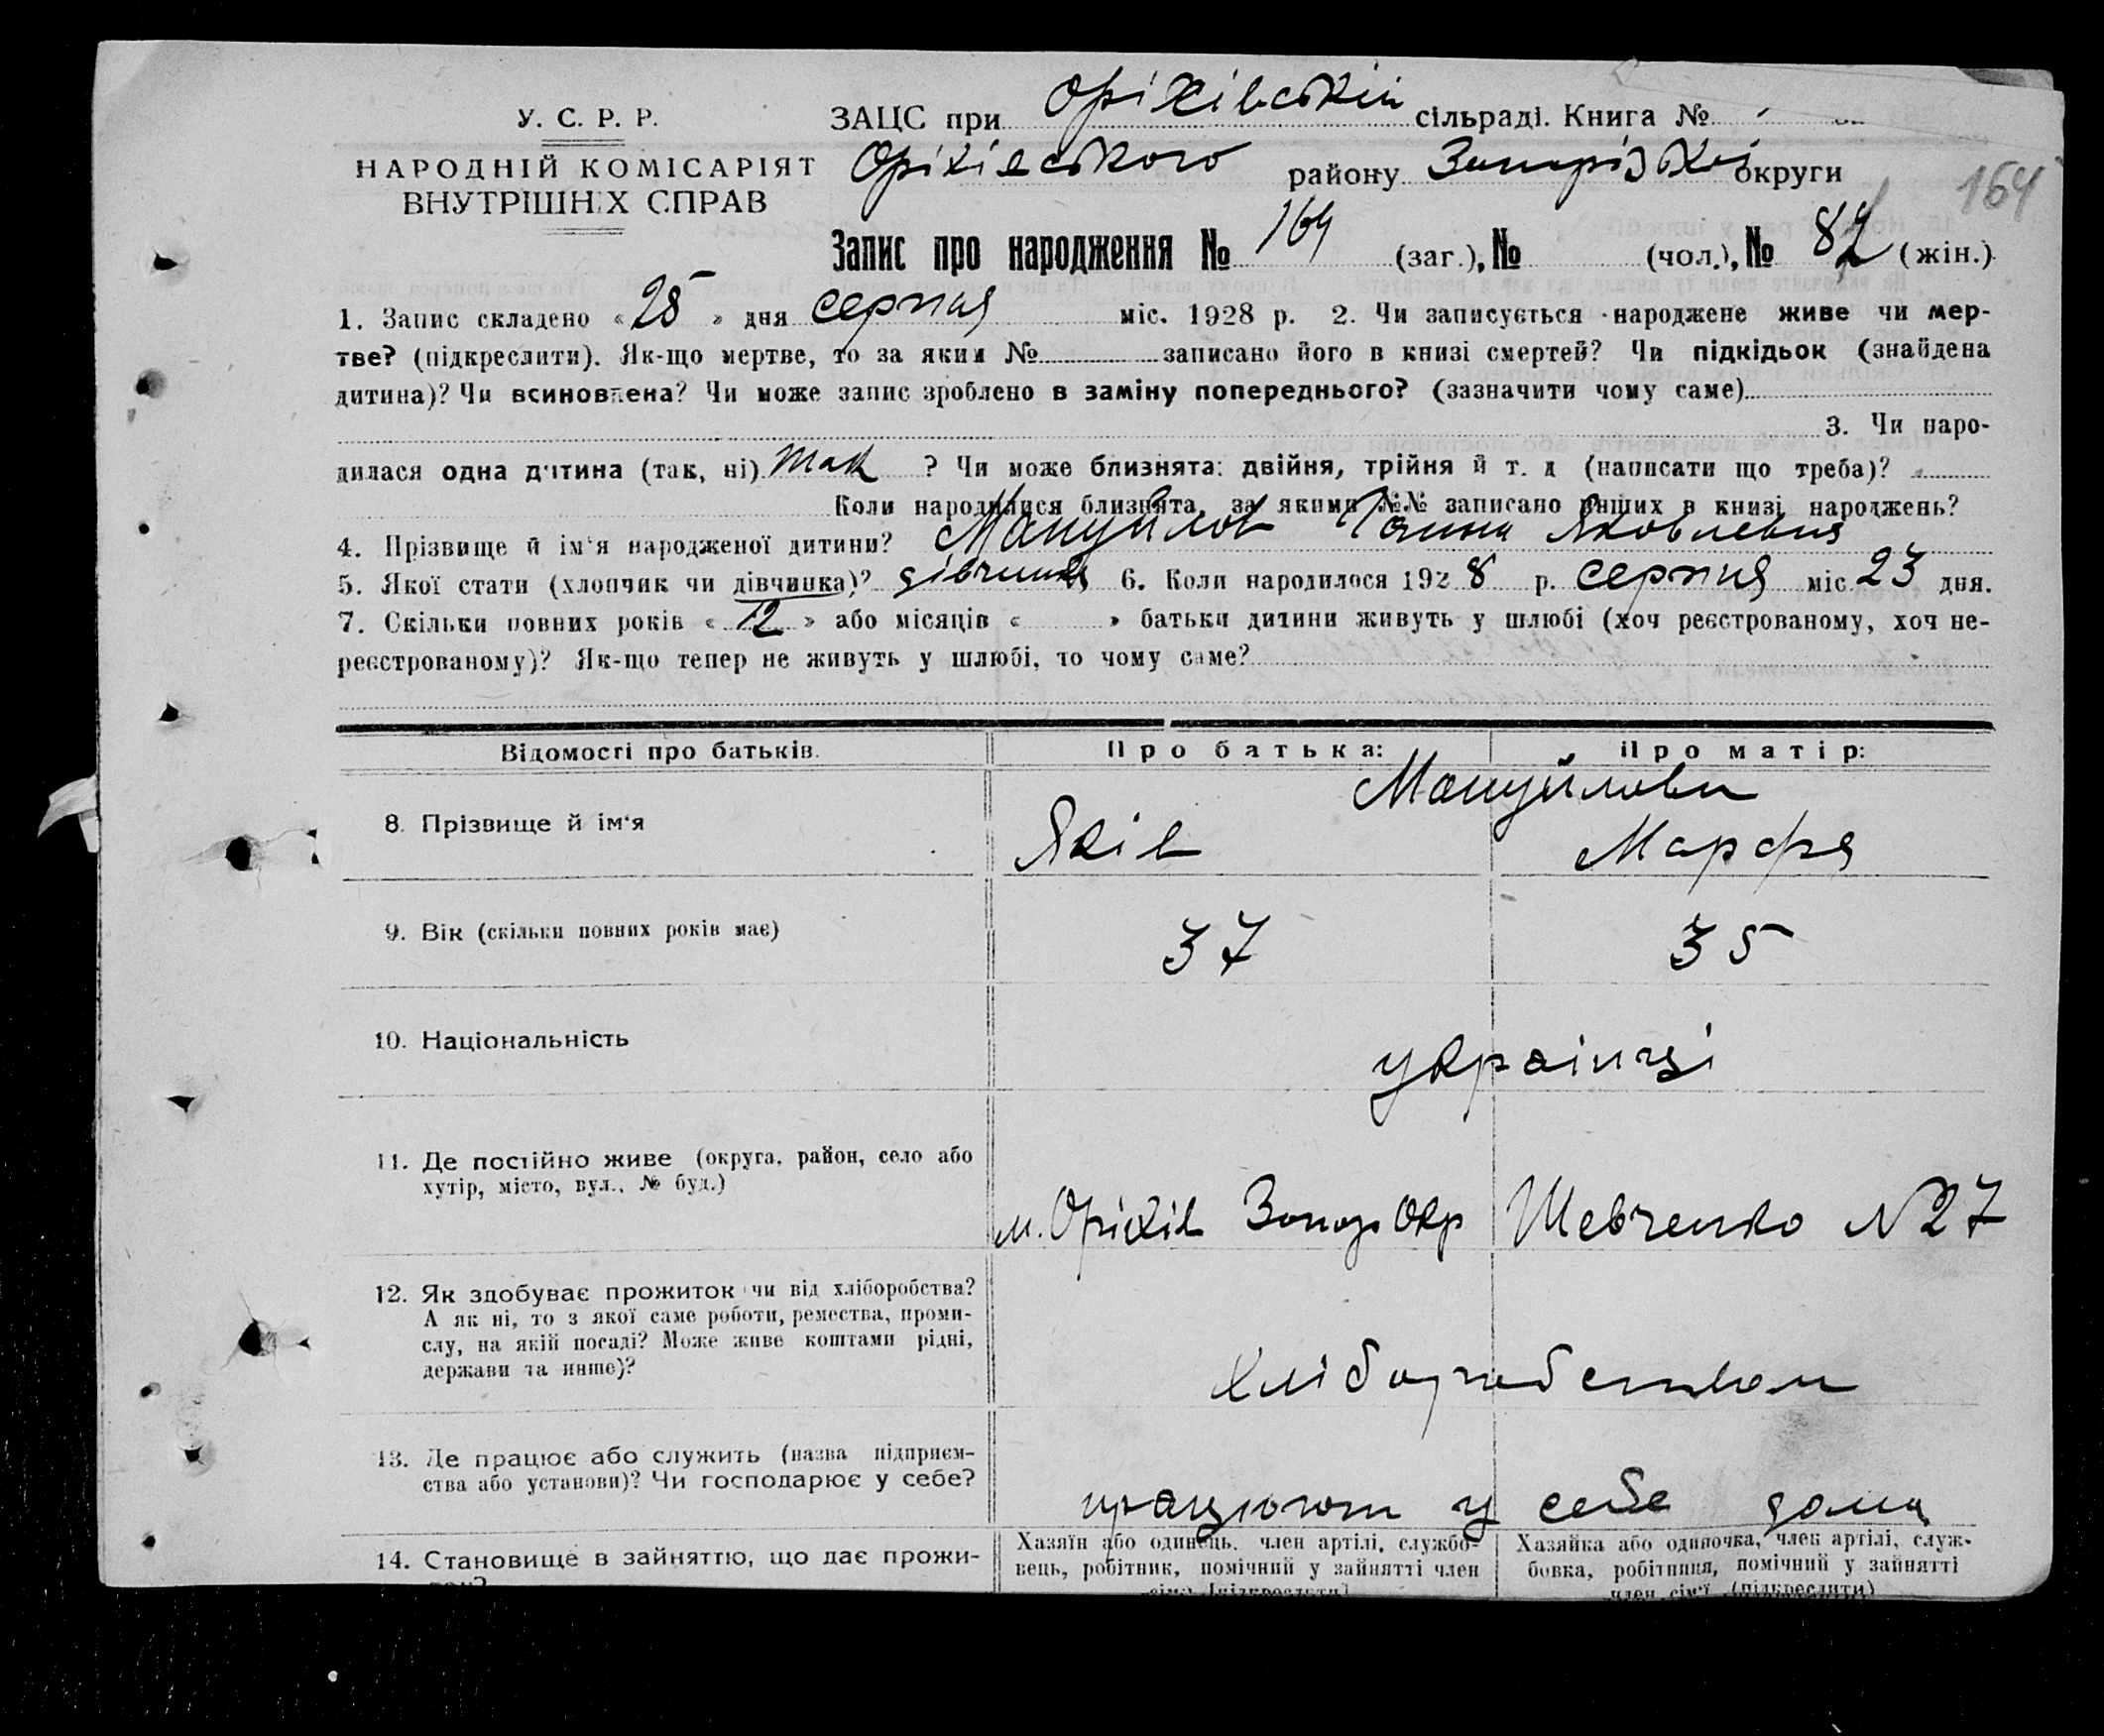 У. С. Р. Р.
НАРОДНІЙ КОМІСАРІЯТ
ВНУТРІШНІХ СПРАВ
ЗАЦС при Оріхівській сільраді. Книга №
Оріхівського району Запорізької округи
164
Запис про народження № 164 (заг.), № (чол.), № 82 (жін.)
1. Запис складено «25» дня серпня міс. 1928 р. 2. Чи записується народжене живе чи мер-
тве? (підкреслити). Як-що мертве, то за яким № записано його в книзі смертей? Чи підкідьок (знайдена
дитина)? Чи всиновлена? Чи може запис зроблено в заміну попереднього? (зазначити чому саме)
3. Чи наро-
дилася одна дитина (так, ні) так ? Чи може близнята: двійня, трійня й т. д (написати що треба)?
Коли народилися близнята, за якими №№ записано инших в книзі народжень?
4. Прізвище й ім‘я народженої дитини? Мануйлов Ганна Яковлевна
5. Якої стати (хлопчик чи дівчинка)? дівчинка 6. Коли народилося 1928 р. серпня міс 23 дня.
7. Скільки повних років «12» або місяців « » батьки дитини живуть у шлюбі (хоч реєстрованому, хоч не-
реєстрованому)? Як-що тепер не живуть у шлюбі, то чому саме?
Відомості про батьків. Про батька: Про матір:
Мануйлови
8. Прізвище й ім‘я Яків Марфа
9. Вік (скільки повних років має) 37 35
10. Національність українці
11. Де постійно живе (округа, район, село або
хутір, місто, вул., № буд.)
м. Оріхів Запор Окр Шевченко № 27
12. Як здобуває прожиток чи від хліборобства?
А як ні, то з якої саме роботи, ремества, проми-
слу, на якій посаді? Може живе коштами рідні,
держави та инше)?
Хліборобством
13. Де працює або служить (назва підприєм-
ства або установи)? Чи господарює у себе?
працюют у себе дома
14. Становище в зайняттю, що дає прожи-
Хазяїн або одинець, член артілі, службо-
вець, робітник, помічний у зайнятті член
Хазяйка або одиночка, член артілі, служ-
бовка, робітниця, помічний у зайнятті
член сім‘ї (підкреслити)